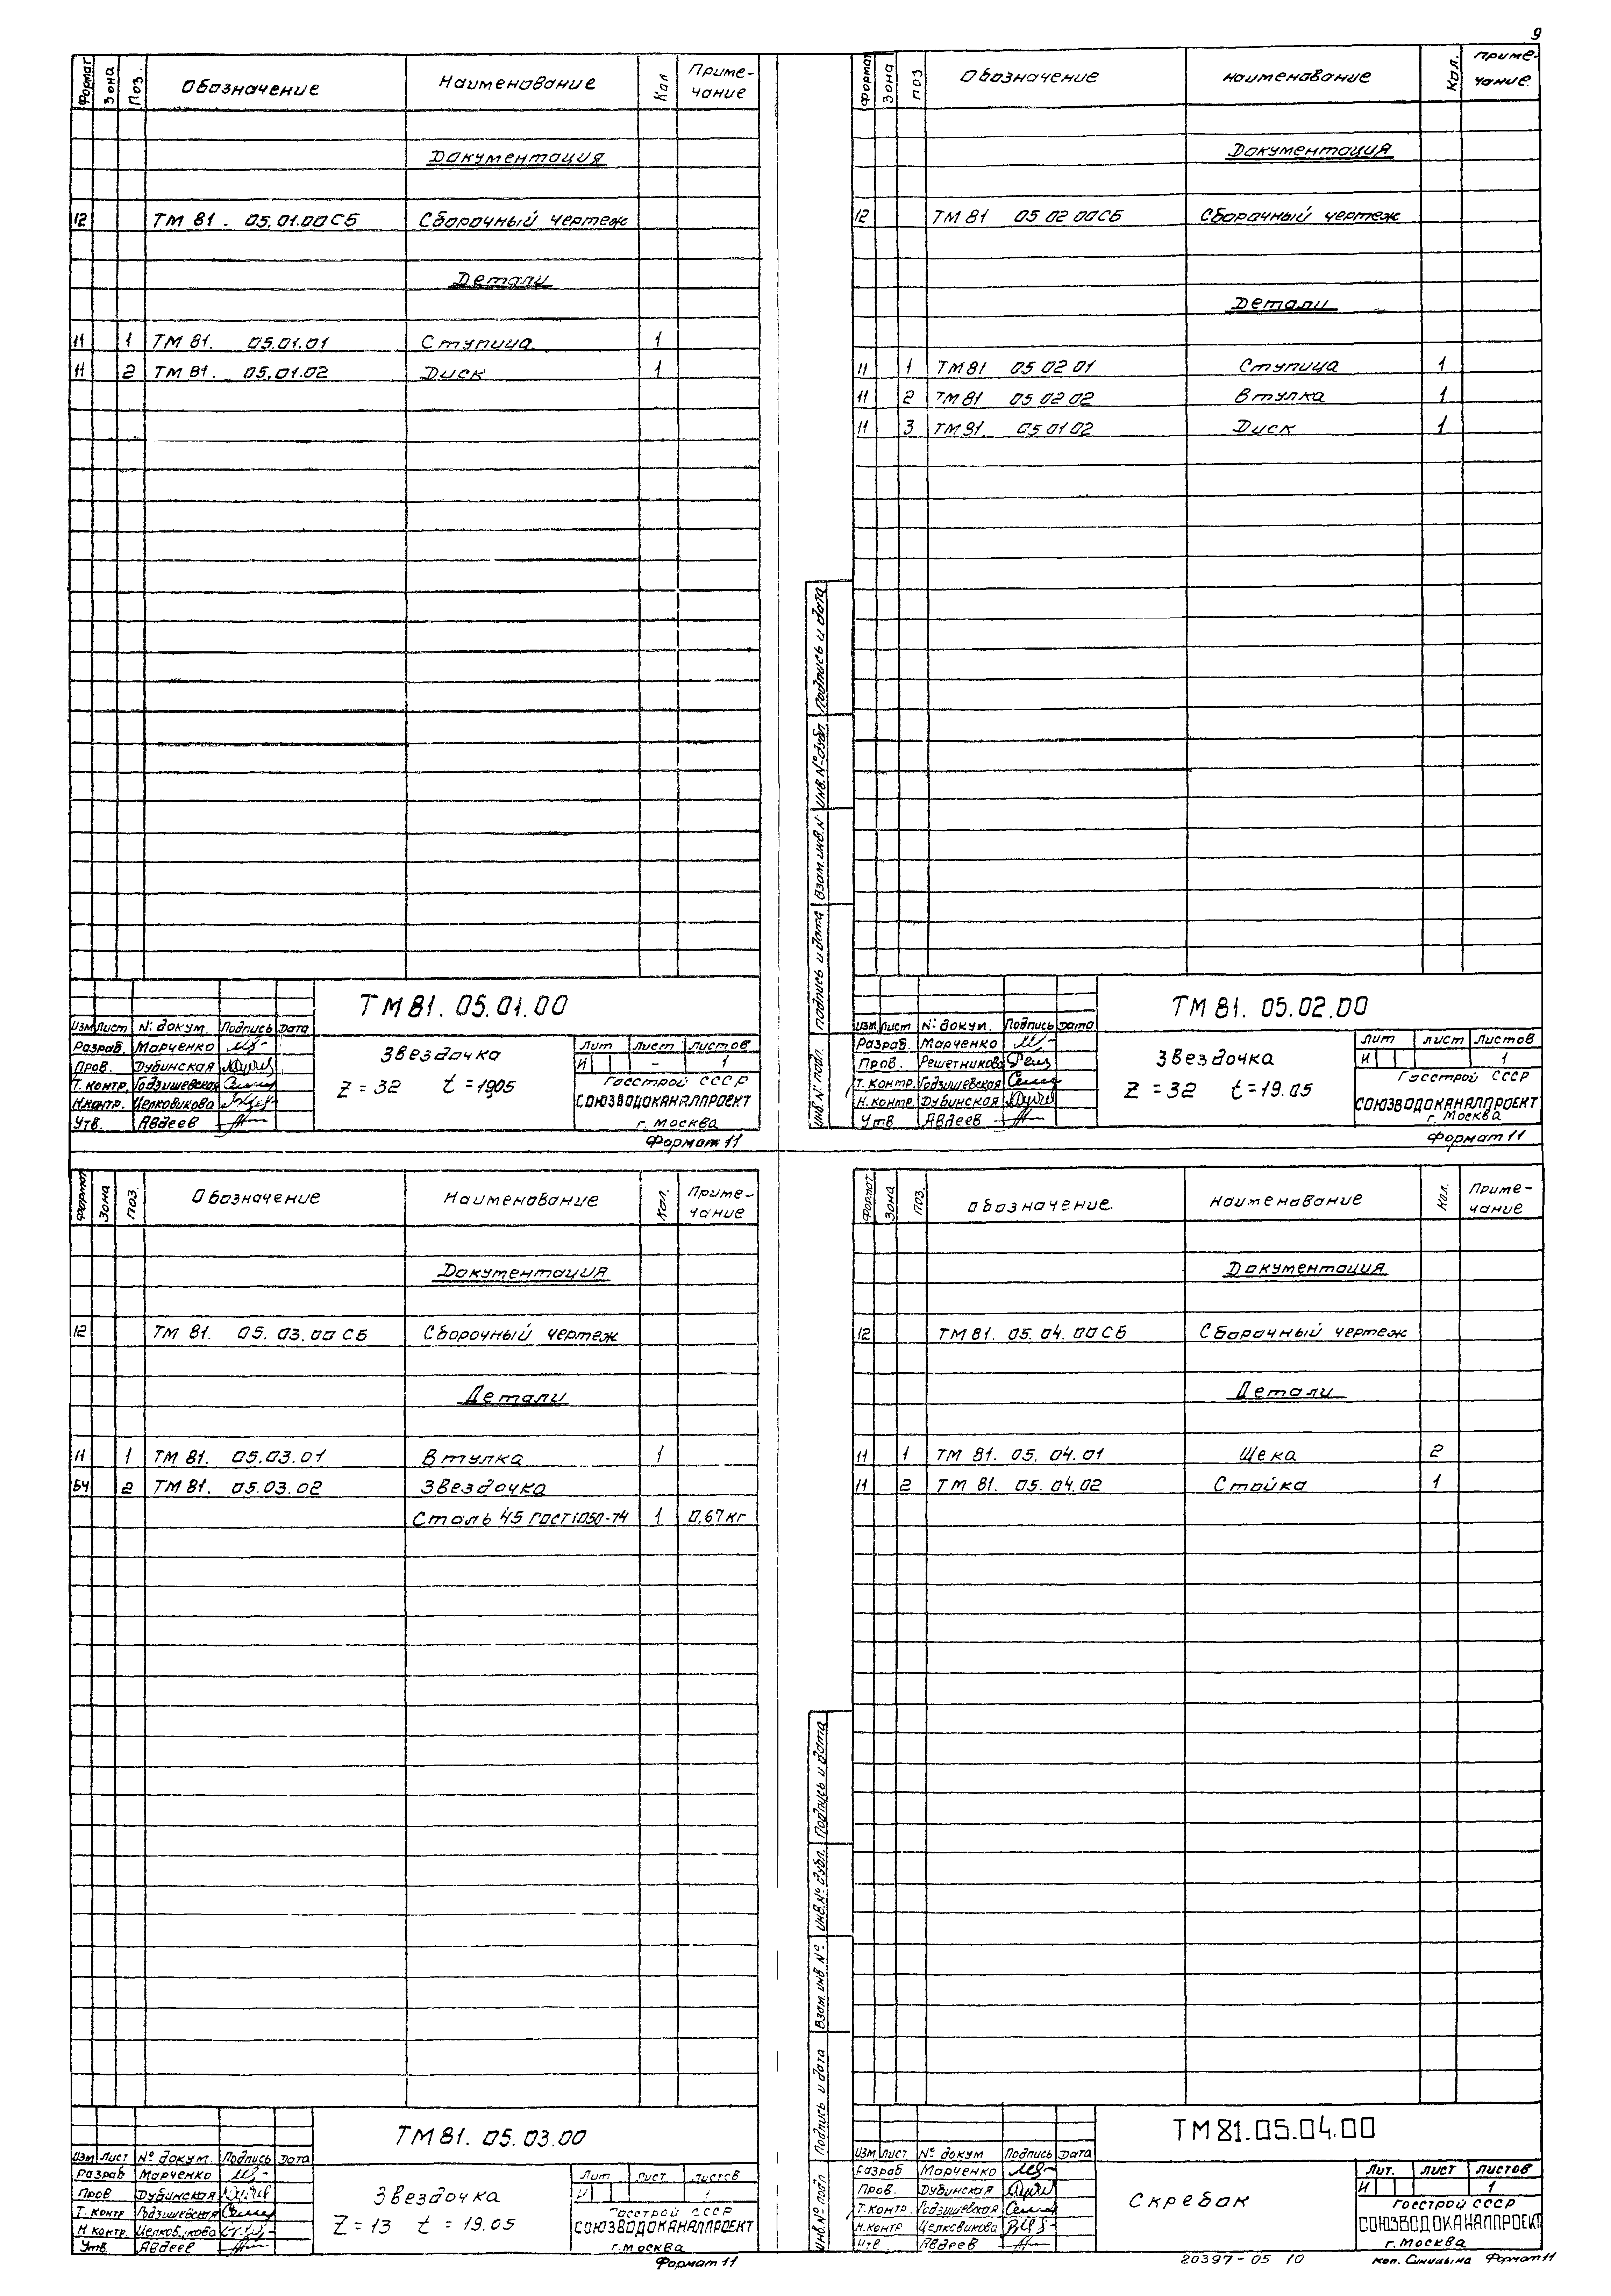 9
Формат Зона Поз. Обозначение Наименование Кол Приме-
чание
Документация
12 ТМ 81. 05.01.00СБ Сборочный чертеж
Детали
11 1 ТМ 81. 05.01.01 Ступица 1
11 2 ТМ 81. 05.01.02 Диск 1
ТМ 81. 05.01.00
Изм Лист № докум. Подпись Дата
Разраб. Марченко
Пров. Дубинская
Т. контр. Годзишевская
Н.контр. Целковикова
Утв. Авдеев
Звездочка
Z = 32 t = 19,05
Лит Лист Листов
И – 1
Госстрой СССР
СОЮЗВОДОКАНАЛПРОЕКТ
г. Москва
Формат 11
Формат Зона Поз Обозначение Наименование Кол. Приме-
чание.
Документация
12 ТМ 81 05 02 00СБ Сборочный чертеж
Детали
11 1 ТМ81 05 02 01 Ступица 1
11 2 ТМ 81 05 02 02 Втулка 1
11 3 ТМ 81. 05 01 02 Диск 1
Подпись и дата
Инв. № дубл.
Взам. инв. №
Подпись и дата
Инв. № подл.
ТМ 81. 05.02.00
Изм Лист № докум. Подпись Дата
Разраб. Марченко
Пров. Решетникова
Т. контр. Годзишевская
Н. контр. Дубинская
Утв Авдеев
Звездочка
Z = 32 t = 19.05
Лит Лист Листов
И 1
Госстрой СССР
СОЮЗВОДОКАНАЛПРОЕКТ
г. Москва
Формат 11
Формат Зона Поз. Обозначение Наименование Кол. Приме-
чание
Документация
12 ТМ 81. 05. 03.00 СБ Сборочный чертеж
Детали
11 1 ТМ 81. 05.03.01 Втулка 1
БЧ 2 ТМ 81. 05.03.02 Звездочка
Сталь 45 ГОСТ 1050-74 1 0,67кг
ТМ 81. 05.03.00
Изм Лист № докум. Подпись Дата
Разраб Марченко
Пров Дубинская
Т. контр Годзишевская
Н контр. Целковикова
Утв. Авдеев
Звездочка
Z = 13 t = 19.05
Лит Лист Листов
И 1
Госстрой СССР
СОЮЗВОДОКАНАЛПРОЕКТ
г. Москва
Формат 11
Формат Зона Поз. Обозначение. Наименование Кол. Приме-
чание
Документация
12 ТМ 81. 05. 04. 00СБ Сборочный чертеж
Детали
11 1 ТМ 81. 05. 04.01 Щека 2
11 2 ТМ 81. 05. 04.02 Стойка 1
Подпись и дата
Инв. № дубл.
Взам. инв №
Подпись и дата
Инв. № подл
ТМ 81.05.04.00
Изм Лист № докум Подпись Дата
Разраб Марченко
Пров. Дубинская
Т. контр. Годзишевская
Н. контр Целковикова
Утв Авдеев
Скребок
Лит. Лист Листов
И 1
Госстрой СССР
СОЮЗВОДОКАНАЛПРОЕКТ
г. Москва
20397-05 10 коп. Синицына Формат 11